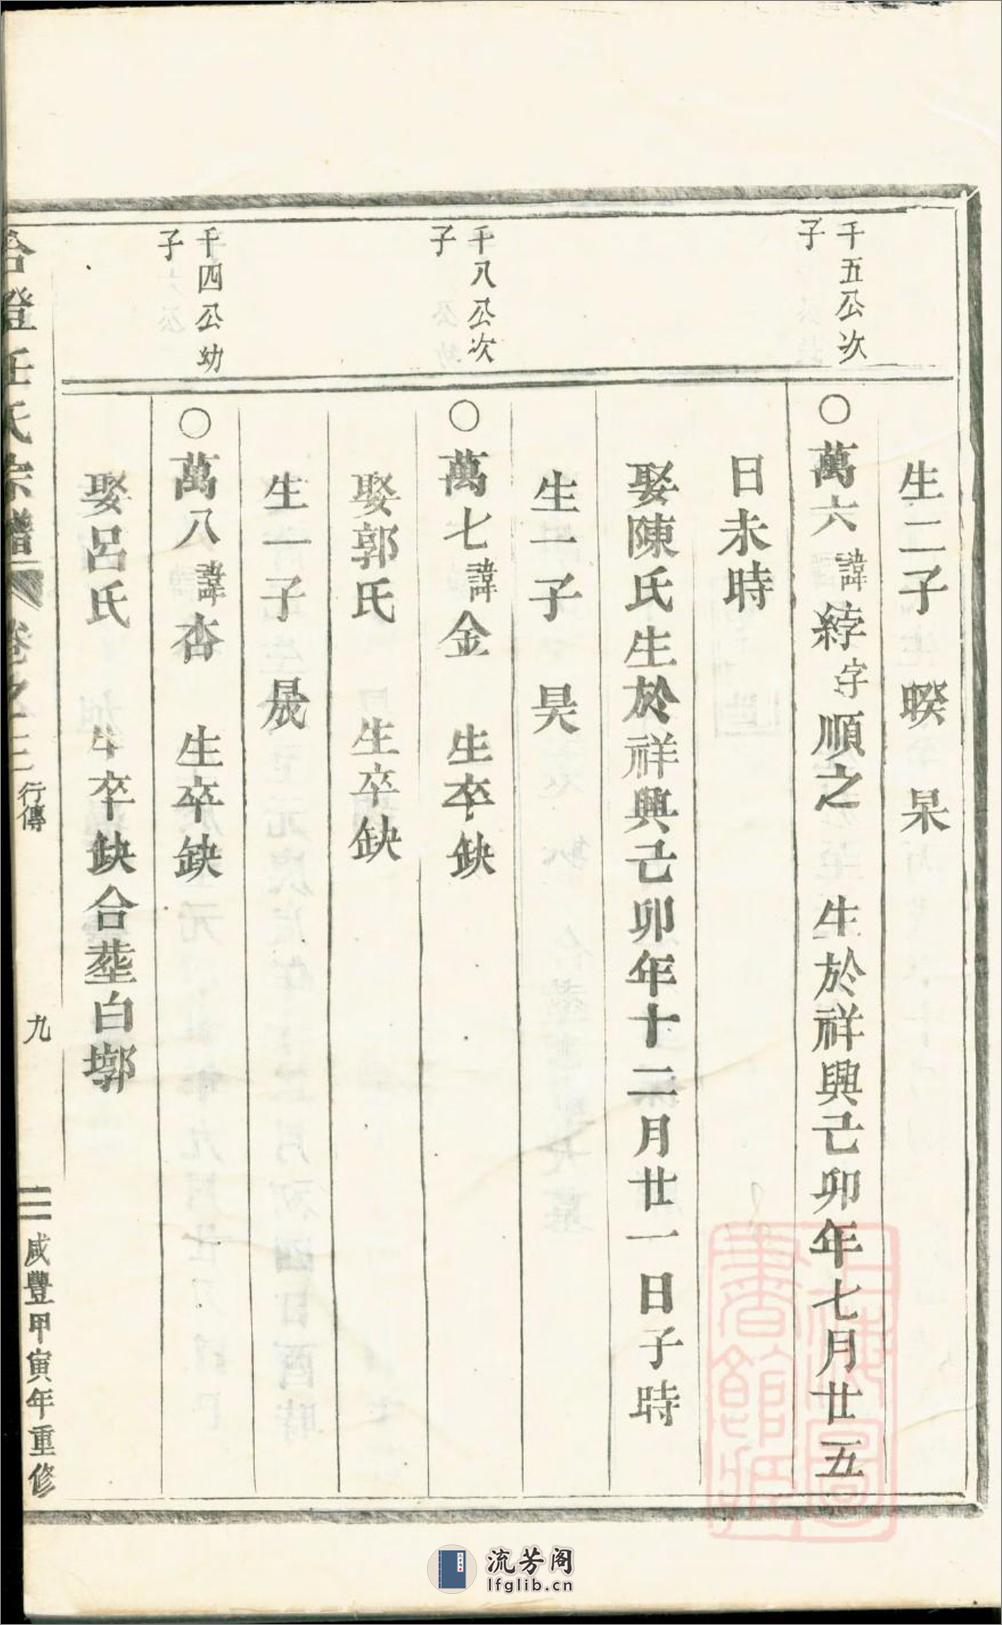 生二子 暌 杲
千五公次
子
○萬六諱綍字順之 生於祥興己卯年七月廿五
日未時
娶陳氏生於祥興己卯年十二月廿一日子時
生一子 昊
千八公次
子
○萬七諱金 生卒缺
娶郭氏 生卒缺
生一子 晟
千四公幼
子
○萬八諱杏 生卒缺
娶呂氏 生卒缺合塟白墎
澄任氏宗譜 卷之三 行傳 九 咸豐甲寅年重修
上海圖書館藏
流芳阁
lfglib.cn